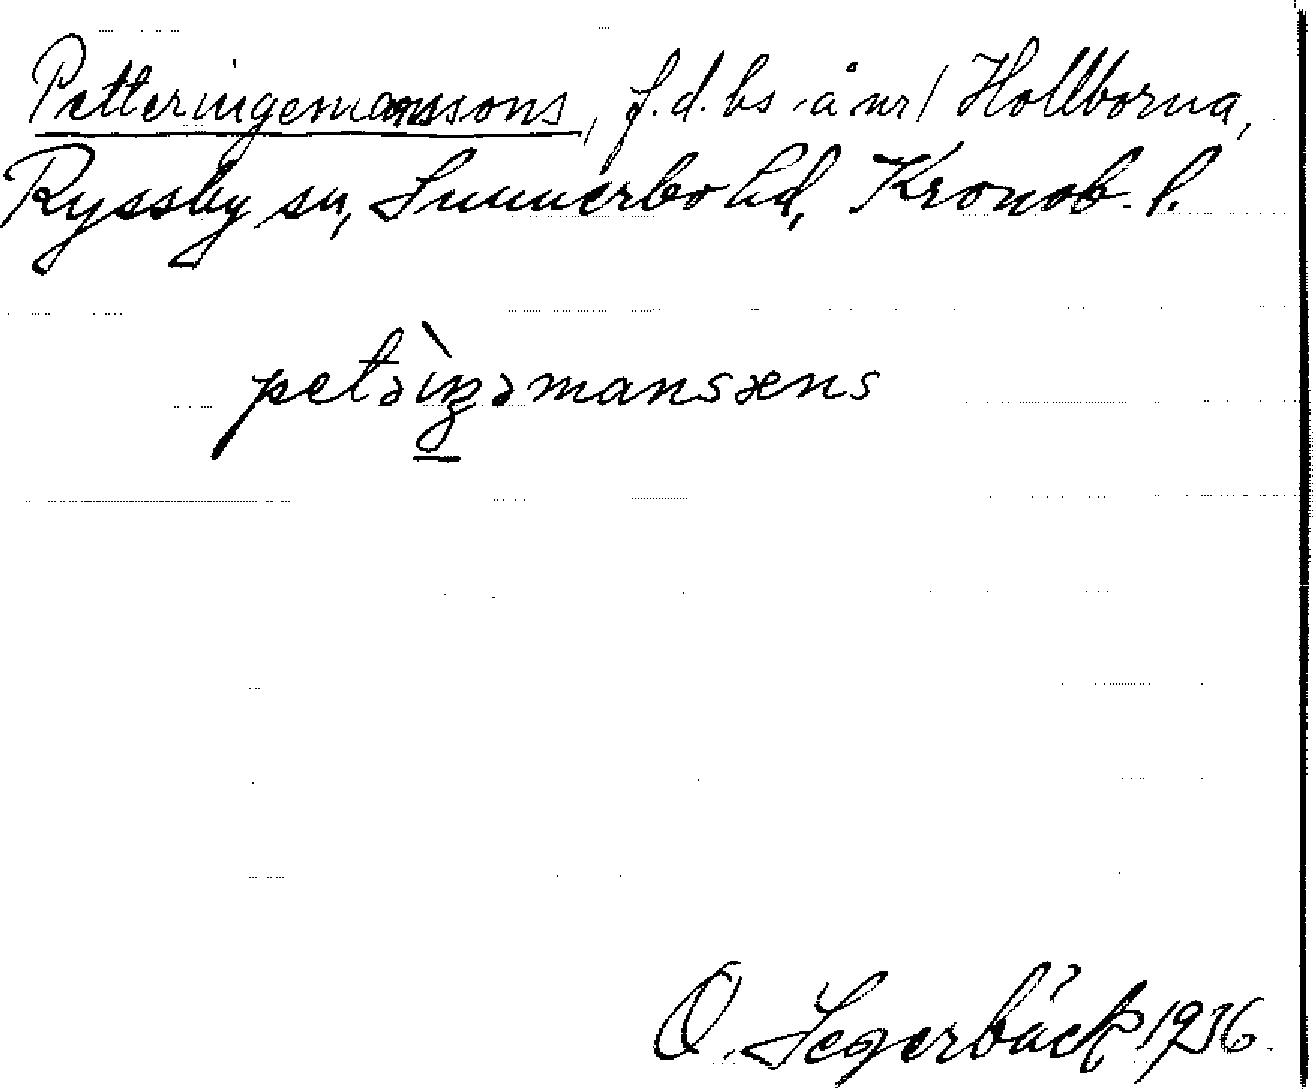 Petteringemanssons, f.d. bs å nr 1 Hollborna,
Ryssby sn, Sunnerbo hd, Kronob. l.
petəìŋəmansæns
O. Segerbäck 1936